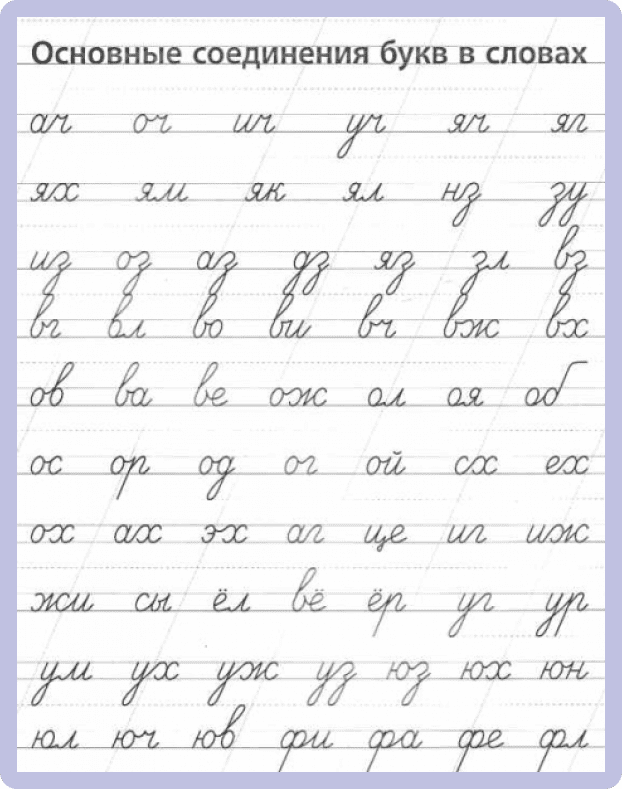 Основные соединения букв в словах
ач оч ич уч яч яг
ях ям як ял нз зу
из оз аз дз яз зл вз
вг вл во ви вч вж вх
ов ва ве ож ол оя об
ос ор од ог ой сх ех
ох ах эх аг це иг иж
жи сы ёл вё ёр уг ур
ум ух уж уз юз юх юн
юл юч юв фи фа фе фл